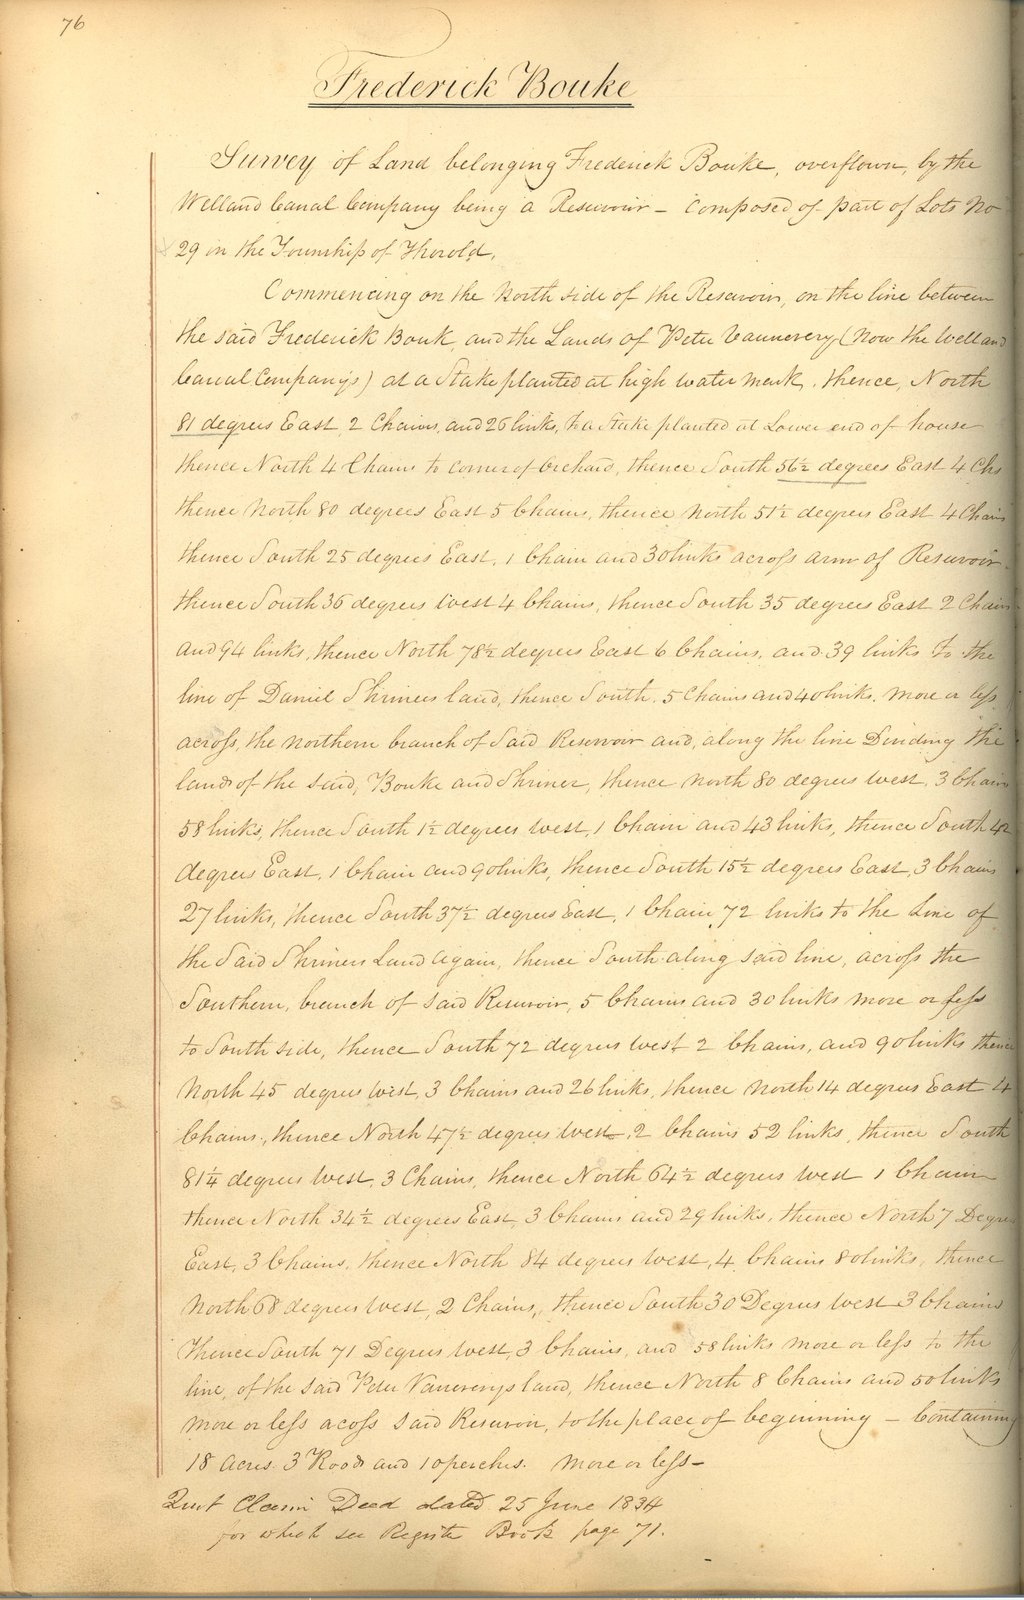 76
Frederick Bouke
Survey of Land belonging Frederick Bouke, overflown, by the
Welland Canal Company being a Reservoir - Composed of part of Lots No
29 in the Township of Thorold.
Commencing on the North side of the Reservoir, on the line between
the said Frederick Bouk, and the Lands of Peter Vanevery (Now the Welland
Canal Company's) at a Stake planted at high water mark, thence, North
81 degrees East, 2 Chains, and 26 links, to a Stake planted at Lower end of house
thence North 4 Chains to corner of Orchard, thence South 56½ degrees East 4 Chs
thence North 80 degrees East 5 Chains, thence North 51½ degrees East 4 Chains
thence South 25 degrees East, 1 Chain and 30 links across arm of Reservoir
thence South 36 degrees West 4 Chains, thence South 35 degrees East 2 Chains
and 94 links, thence North 78½ degrees East 6 Chains, and 39 links to the
line of Daniel Shriners land, thence South, 5 Chains and 40 links, more or less
across, the northern branch of said Reservoir and, along the line Dividing the
lands of the said, Bouke and Shriner, thence North 80 degrees west, 3 Chains
58 links, thence South 1½ degrees west, 1 Chain and 43 links, thence South 42
degrees East, 1 Chain and 90 links, thence South 15½ degrees East, 3 Chains
27 links, thence South 37½ degrees East, 1 Chain 72 links to the Line of
the Said Shriners Land again, thence South along said line, across the
Southern, branch of said Reservoir, 5 Chains and 30 links more or less
to South side, thence South 72 degrees west 2 Chains, and 90 links thence
North 45 degrees west, 3 Chains and 26 links, thence North 14 degrees East 4
Chains, thence North 47½ degrees West, 2 Chains 52 links, thence South
81¼ degrees West, 3 Chains, thence North 64½ degrees west 1 Chain
thence North 34½ degrees East, 3 Chains and 29 links, thence North 7 Degrees
East, 3 Chains, thence North 84 degrees west, 4 Chains 80 links, thence
North 68 degrees West, 2 Chains, thence South 30 Degrees West 3 Chains
thence South 71 Degrees West, 3 Chains, and 58 links more or less to the
line, of the said Peter Vaneverys land, thence North 8 Chains and 50 links
more or less acoss said Reservoir, to the place of beginning - Containing
18 acres 3 Roods and 10 perches. more or less -
Quit Claim Deed dated 25 June 1834
for which see Register Book page 71.